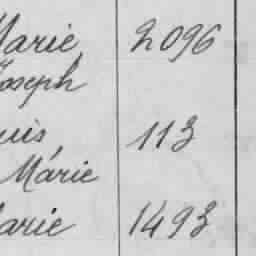 Marie 2096
Joseph
uis, 113
Marie
arie 1493